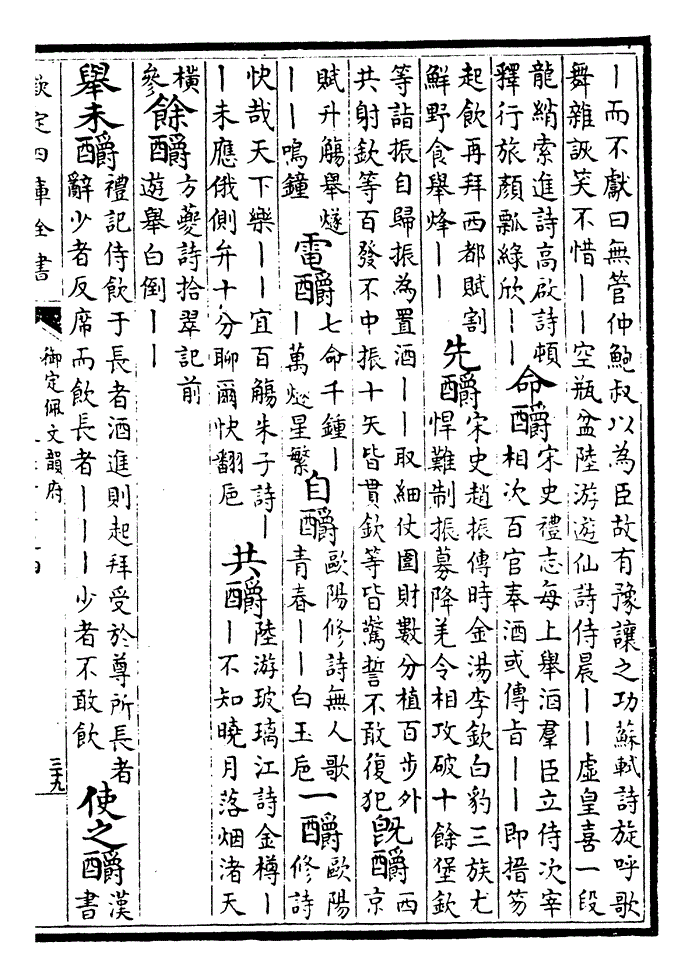 丨而不獻曰無管仲鮑叔以為臣故有豫讓之功蘇軾詩旋呼歌
舞雜詼笑不惜丨丨空瓶盆陸游遊仙詩侍晨丨丨虛皇喜一段
龍綃索進詩高啟詩頓
釋行旅顏瓢綠欣丨丨
命釂
宋史禮志每上舉酒羣臣立侍次宰
相次百官奉酒或傳旨丨丨即搢笏
起飲再拜西都賦割
鮮野食舉烽丨丨
先釂
宋史趙振傳時金湯李欽白豹三族尤
悍難制振募降羌令相攻破十餘堡欽
等詣振自歸振為置酒丨丨取細仗圍財數分植百步外
共射欽等百發不中振十矢皆貫欽等皆驚誓不敢復犯
旣釂
西
京
賦升觴舉燧
丨丨鳴鐘
電釂
七命千鍾丨
丨萬燧星繁
自釂
歐陽修詩無人歌
青春丨丨白玉巵
一釂
歐陽
修詩
快哉天下樂丨丨宜百觴朱子詩丨
丨未應俄側弁十分聊爾快翻巵
共釂
陸游玻璃江詩金樽丨
丨不知曉月落烟渚天
橫
參
餘釂
方夔詩拾翠記前
遊舉白倒丨丨
舉未釂
禮記侍飲于長者酒進則起拜受於尊所長者
辭少者反席而飲長者丨丨丨少者不敢飲
使之釂
漢
書
欽定四庫全書
御定佩文韻府
三十九